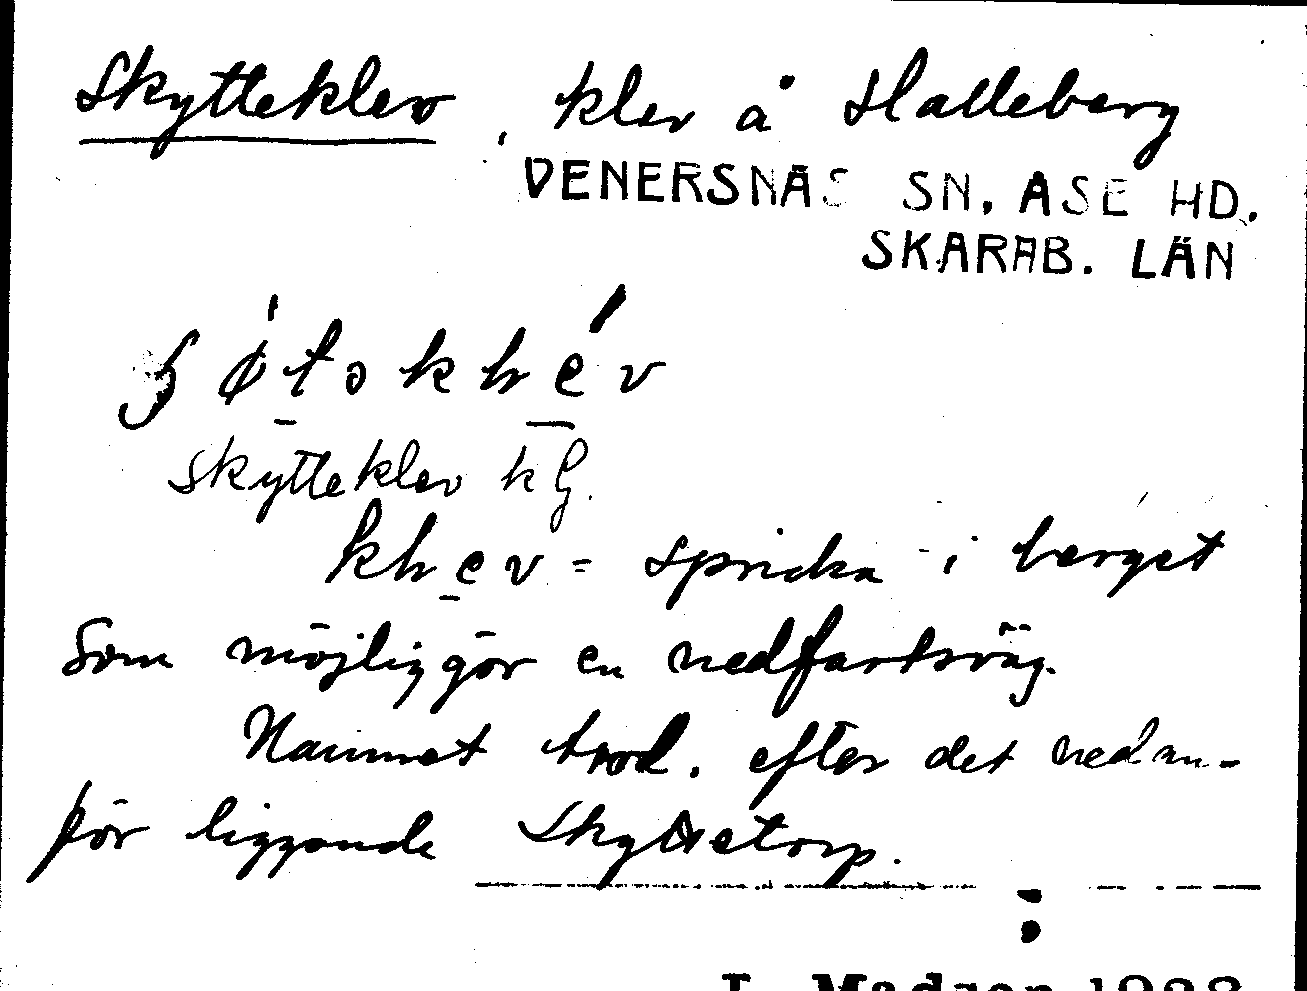 Skytteklev, klev å Halleberg
VENERSNÄS SN, ASE HD.
SKARAB. LÄN
skytteklev k G.
= spricka i berget
som möjliggör en nedfartsväg.
Namnet trol. efter det nedan-
för liggande Skyttetorp.